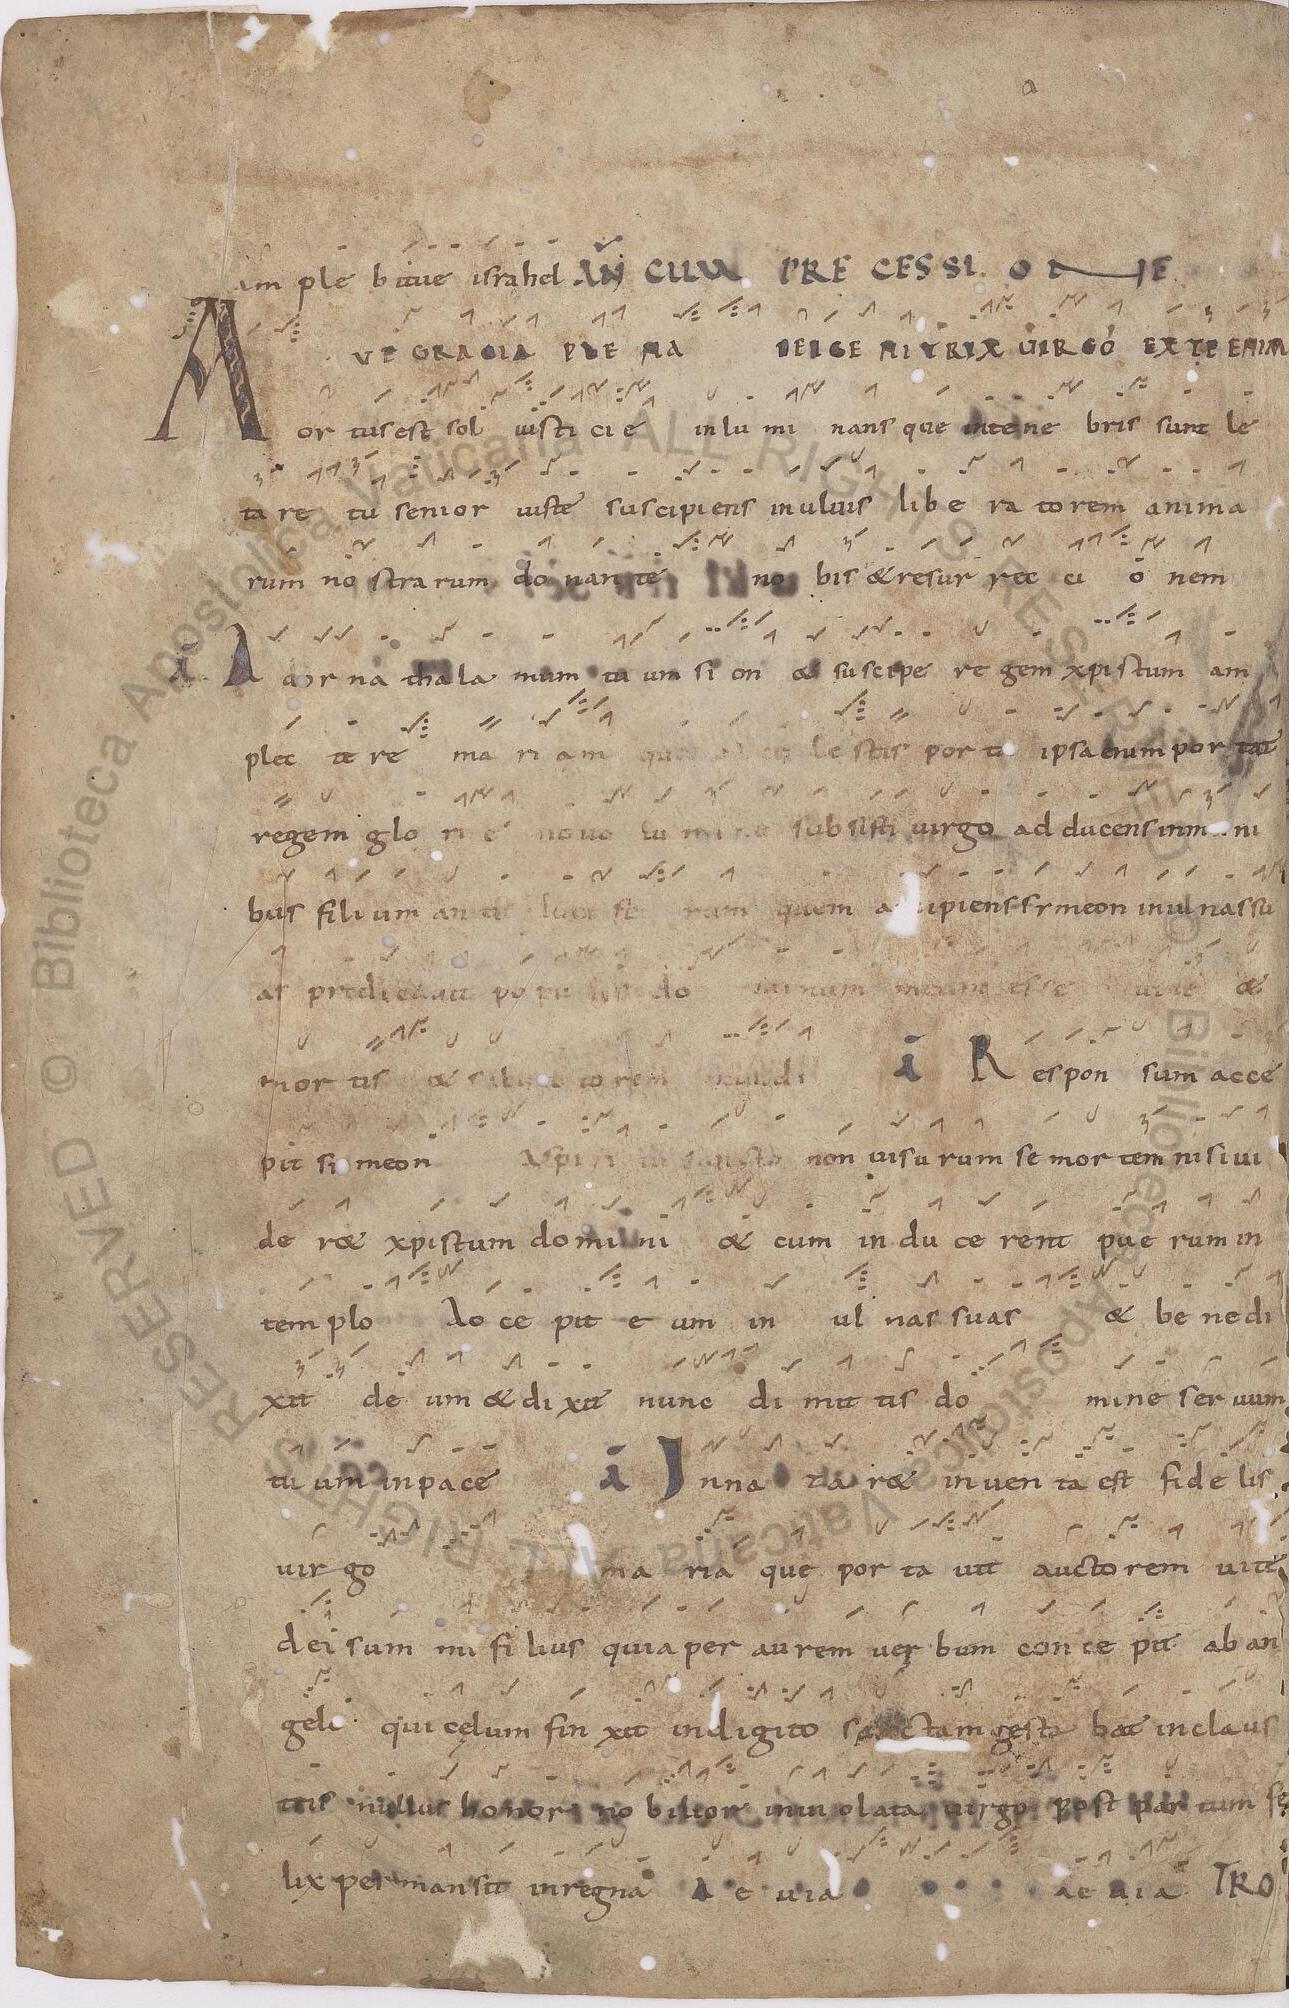 a
am ple bitue israhel AÑ CUM PRE CESSI. O N IE
A VE GRACIA PLE NA DEI GE NI TRIX VIRGO EX TE ENIM
or tus est sol iusti cie inlu mi nans que intene bris sunt le
ta re tu senior iuste suscipiens in ulnis libe ra torem anima
rum no stra rum do nan te no bis & resur rec ci o nem
a A dor na thala mum tu um si on & suscipe re gem xpistum am
plec te re ma ri am que celestis por ta ipsa enim por tat
regem glo ri e novo lu mi ne subsisti virgo ad ducens in ma ni
bus filium an te luci fe rum quem a cipiens symeon in ulnas su
as predicavit po pu lis do minum eum esse vite &
mor tis & salva to rem mundi a R espon sum acce
pit si meon A spi ri tu sancto non visu rum se mor tem nisi vi
de r& xpistum domi ni & cum in du ce rent pue rum in
tem plo Ac ce pit e um in ul nas suas & be nedi
xit de um & di xit nunc di mit tis do mine ser vum
tu um in pace a I nna ta r& in ven ta est fide lis
vir go ma ria que por ta vit auctorem vite
dei sum mi fi lius quia per aurem ver bum con ce pit ab an
geli qui celum fin xit indigito sanctam gesta bat in claus
tris nullus honor no bilior inui olata virgo post par tum fe
lix per mansit in regna A e via ae via TRO
© Biblioteca Apostolica Vaticana ALL RIGHTS RESERVED © Biblioteca Apostolica Vaticana ALL RIGHTS RESERVED